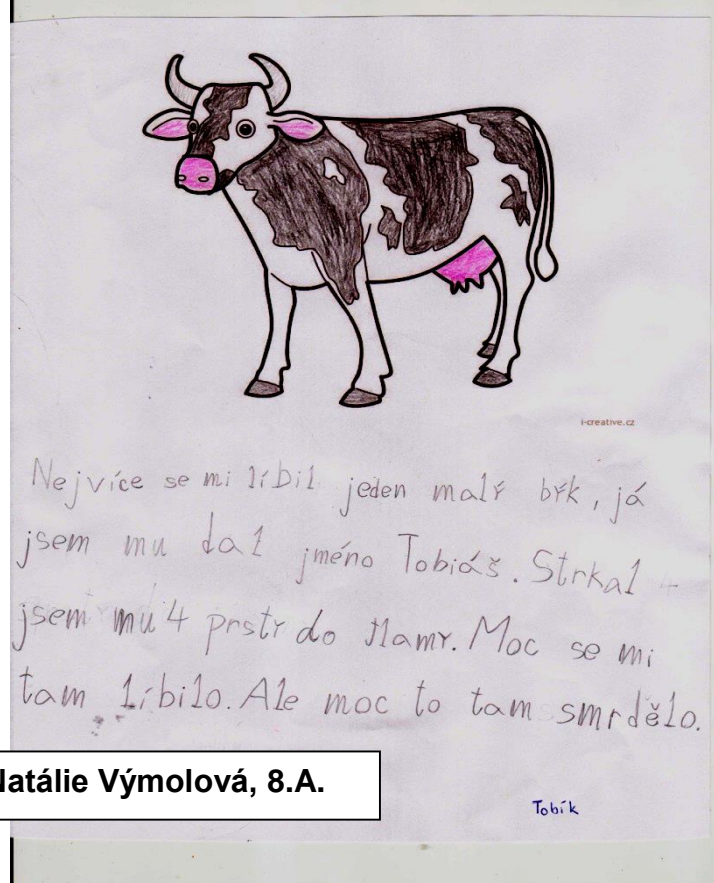 i-creative.cz
Nejvíce se mi líbil jeden malý býk, já
jsem mu dal jméno Tobiáš. Strkal
jsem mu 4 prsty do tlamy. Moc se mi
tam líbilo. Ale moc to tam smrdělo.
Natálie Výmolová, 8.A.
Tobík